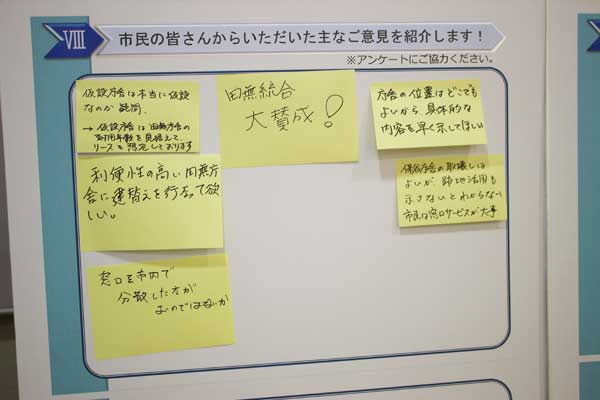 Ⅷ
市民の皆さんからいただいた主なご意見を紹介します！
※アンケートにご協力ください。
仮設庁舎は本当に仮設
なのか 疑問.
→ 仮設庁舎は田無庁舎の
耐用年数を見据えて、
リースを想定しております
田無統合
大賛成！
庁舎の位置はどこでも
よいから 具体的な
内容を早く示してほしい
利便性の高い田無庁
舎に建替えを行なって欲
しい。
保谷庁舎の取壊しは
よいが 跡地活用も
示さないとわからない
市民は窓口サービスが大事
窓口を市内で
分散した方が
よいのではないか